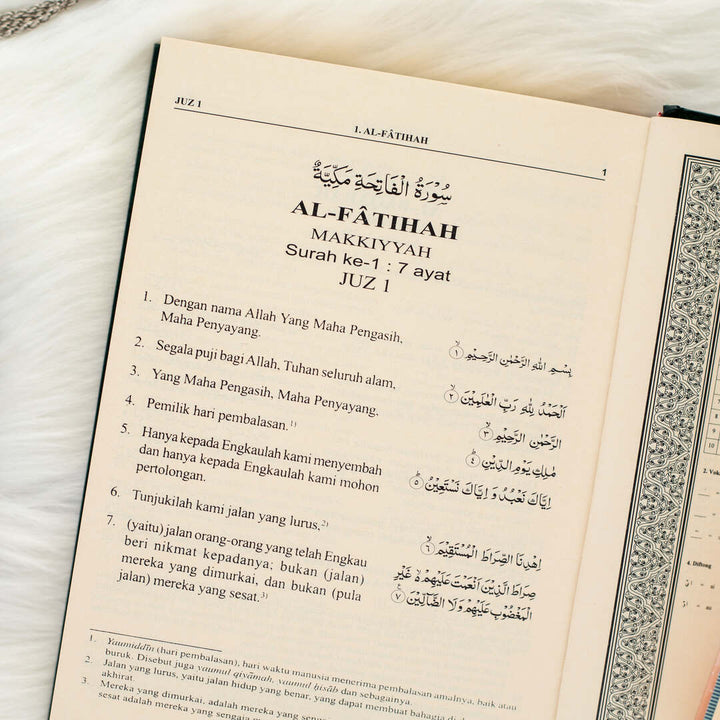 JUZ 1
1. AL-FÂTIHAH
1
سُوْرَةُ الْفَاتِحَةِ مَكِّيَّةٌ
AL-FÂTIHAH
MAKKIYYAH
Surah ke-1 : 7 ayat
JUZ 1
1. Dengan nama Allah Yang Maha Pengasih,
Maha Penyayang.
بِسْمِ اللّٰهِ الرَّحْمٰنِ الرَّحِيْمِ ۝١
2. Segala puji bagi Allah, Tuhan seluruh alam,
اَلْحَمْدُ لِلّٰهِ رَبِّ الْعٰلَمِيْنَ ۝٢
3. Yang Maha Pengasih, Maha Penyayang,
الرَّحْمٰنِ الرَّحِيْمِ ۝٣
4. Pemilik hari pembalasan.1)
مٰلِكِ يَوْمِ الدِّيْنِ ۝٤
5. Hanya kepada Engkaulah kami menyembah
dan hanya kepada Engkaulah kami mohon
pertolongan.
اِيَّاكَ نَعْبُدُ وَاِيَّاكَ نَسْتَعِيْنُ ۝٥
6. Tunjukilah kami jalan yang lurus,2)
اِهْدِنَا الصِّرَاطَ الْمُسْتَقِيْمَ ۝٦
7. (yaitu) jalan orang-orang yang telah Engkau
beri nikmat kepadanya; bukan (jalan)
mereka yang dimurkai, dan bukan (pula
jalan) mereka yang sesat.3)
صِرَاطَ الَّذِيْنَ اَنْعَمْتَ عَلَيْهِمْ ەۙ غَيْرِ
الْمَغْضُوْبِ عَلَيْهِمْ وَلَا الضَّاۤلِّيْنَ ۝٧
1. Yaumiddîn (hari pembalasan), hari waktu manusia menerima pembalasan amalnya, baik atau
buruk. Disebut juga yaumul qiyâmah, yaumul ḥisâb dan sebagainya.
2. Jalan yang lurus, yaitu jalan hidup yang benar, yang dapat membuat bahagia di
akhirat.
3. Mereka yang dimurkai, adalah mereka yang
sesat adalah mereka yang sengaja
8
9
10
2. Vok
4. Diftong